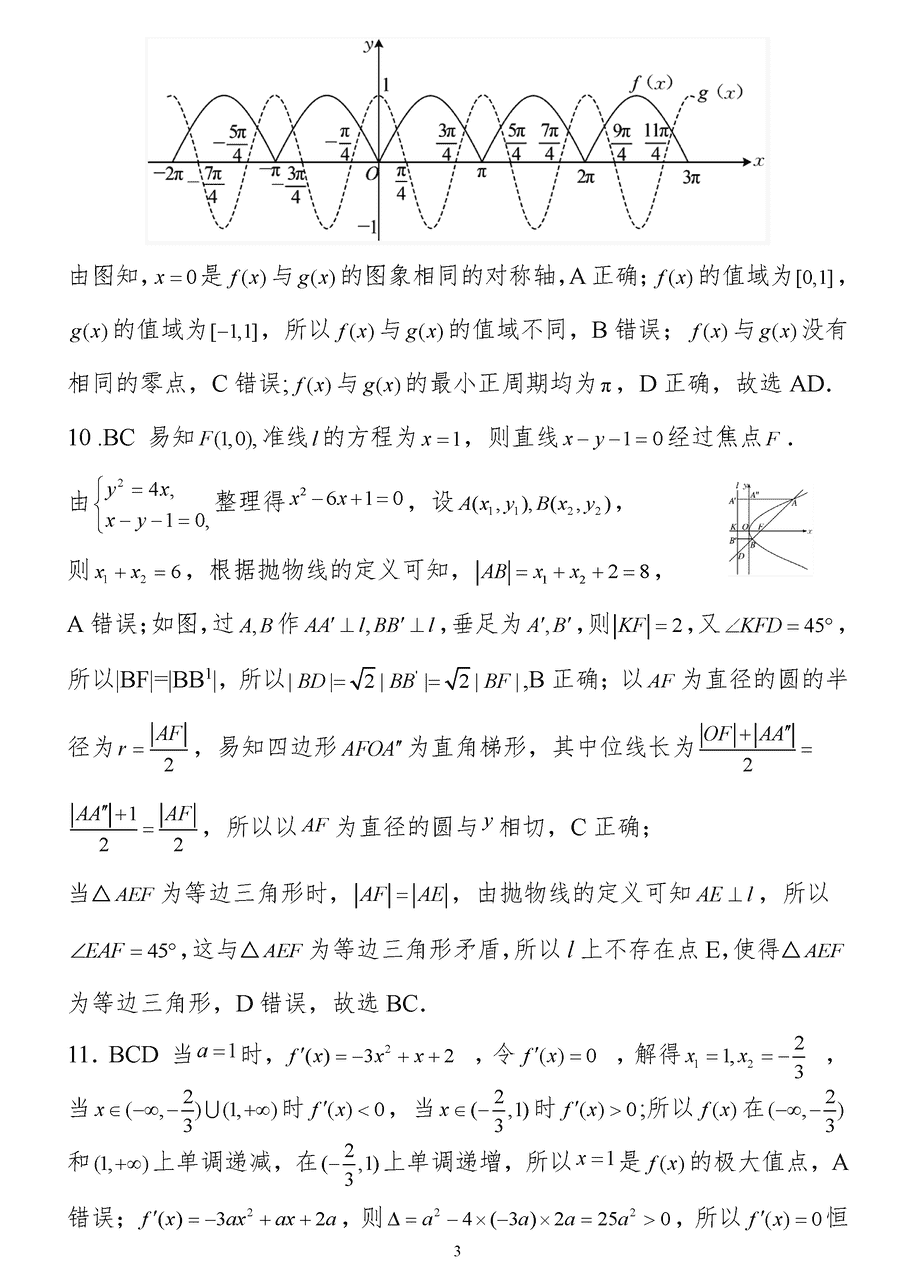 y
1
f（x）
g（x）
−5π/4 −π/4 3π/4 5π/4 7π/4 9π/4 11π/4
−2π −7π/4 −π −3π/4 O π/4 π 2π 3π x
−1
由图知，x = 0是 f(x) 与 g(x) 的图象相同的对称轴，A 正确；f(x) 的值域为[0,1]，
g(x) 的值域为[−1,1]，所以 f(x) 与 g(x) 的值域不同，B 错误； f(x) 与 g(x) 没有
相同的零点，C 错误; f(x) 与 g(x) 的最小正周期均为 π，D 正确，故选 AD．
10 .BC 易知 F(1,0), 准线 l 的方程为 x = 1，则直线 x − y − 1 = 0 经过焦点 F．
由 { y² = 4x, x − y − 1 = 0, 整理得 x² − 6x + 1 = 0，设 A(x₁, y₁), B(x₂, y₂)，
l y
A′ A″ A
K O F x
B′ B
D
则 x₁ + x₂ = 6，根据抛物线的定义可知，|AB| = x₁ + x₂ + 2 = 8，
A 错误；如图，过 A, B 作 AA′ ⊥ l, BB′ ⊥ l，垂足为 A′, B′，则 |KF| = 2，又 ∠KFD = 45°，
所以|BF|=|BB¹|，所以 | BD |= √2 | BB' |= √2 | BF | ,B 正确；以 AF 为直径的圆的半
径为 r = |AF|/2，易知四边形 AFOA″ 为直角梯形，其中位线长为 (|OF| + |AA″|)/2 =
(|AA″| + 1)/2 = |AF|/2，所以以 AF 为直径的圆与 y 相切，C 正确；
当△ AEF 为等边三角形时，|AF| = |AE|，由抛物线的定义可知 AE ⊥ l，所以
∠EAF = 45°，这与△ AEF 为等边三角形矛盾，所以 l 上不存在点 E，使得△ AEF
为等边三角形，D 错误，故选 BC．
11．BCD 当 a = 1 时，f′(x) = −3x² + x + 2 ，令 f′(x) = 0 ，解得 x₁ = 1, x₂ = −2/3 ，
当 x ∈ (−∞, −2/3) ∪ (1, +∞) 时 f′(x) < 0，当 x ∈ (−2/3, 1) 时 f′(x) > 0 ;所以 f(x) 在 (−∞, −2/3)
和 (1, +∞) 上单调递减，在 (−2/3, 1) 上单调递增，所以 x = 1 是 f(x) 的极大值点，A
错误；f′(x) = −3ax² + ax + 2a，则 Δ = a² − 4×(−3a)×2a = 25a² > 0，所以 f′(x) = 0 恒
3